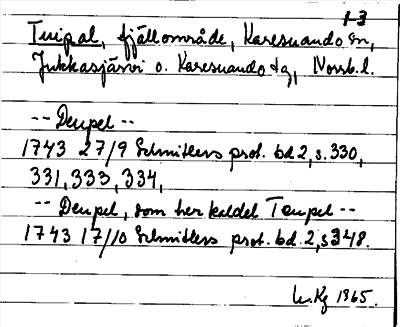 1-3
Tuipal, fjällområde, Karesuando sn,
Jukkasjärvi o. Karesuando tg, Norrb. l.
-- Deupel --
1743 27/9 Schnitlers prot. bd 2, s. 330,
331, 333, 334,
-- Deupel, som her kaldet Teupel --
1743 17/10 Schnitlers prot. bd. 2, s 348.
1965.